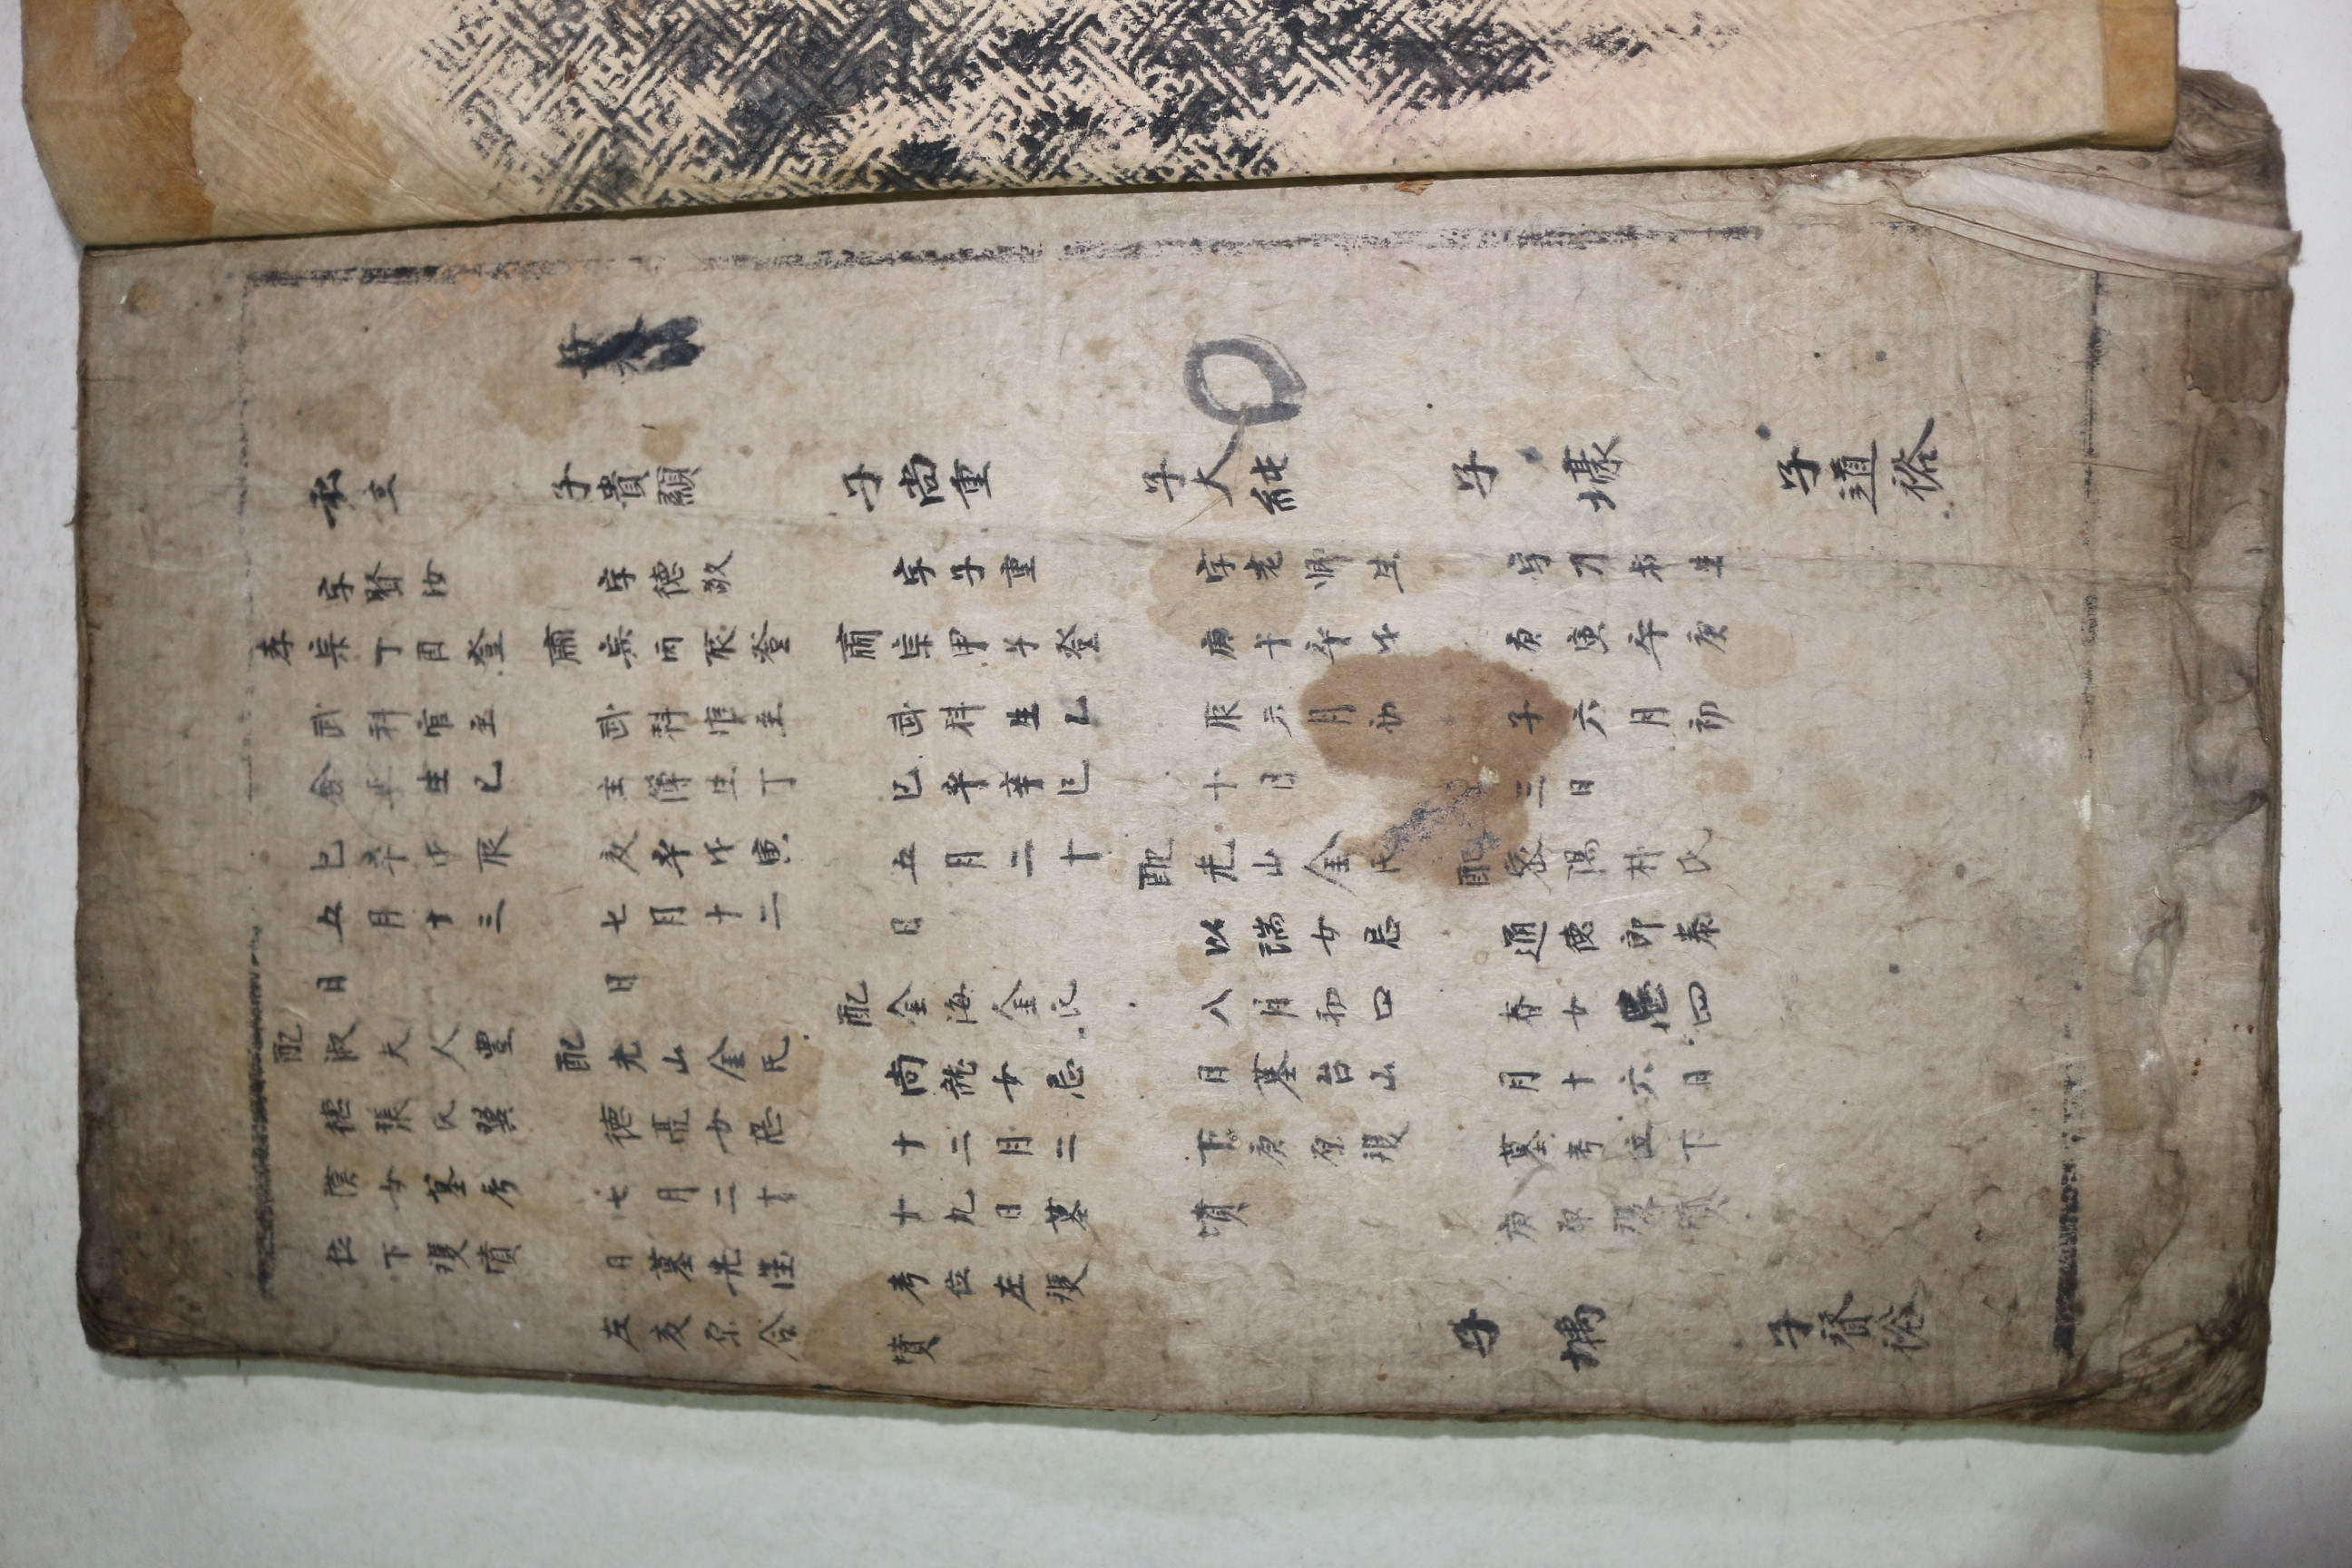 立
字賢汝
孝宗丁酉登
武科官至
僉正生己
巳卒戊辰
五月十三
日
配淑夫人豊
德張氏翼
漢女墓考
位下雙墳
子貴顯
字德敬
肅宗丙辰登
武科官至
主簿生丁
亥卒戊寅
七月十二
日
配光山金氏
德亮女忌
七月二十
日墓先塋
左亥原合
子尚重
字子重
肅宗甲子登
武科生乙
巳卒辛巳
五月二十
日
配金海金氏
尚龍女忌
十二月二
十九日墓
考位左雙
墳
子大純
字老卿生
庚午卒戊
辰六月初
十日
配光山金氏
以瑞女忌
八月初四
日墓台山
下庚原雙
墳
子壕
字刀叔生
庚寅卒庚
子六月初
三日
配密陽朴氏
通德郎泰
春女忌四
月十六日
墓考位下
庚原雙墳
子
子道裕
子賢裕